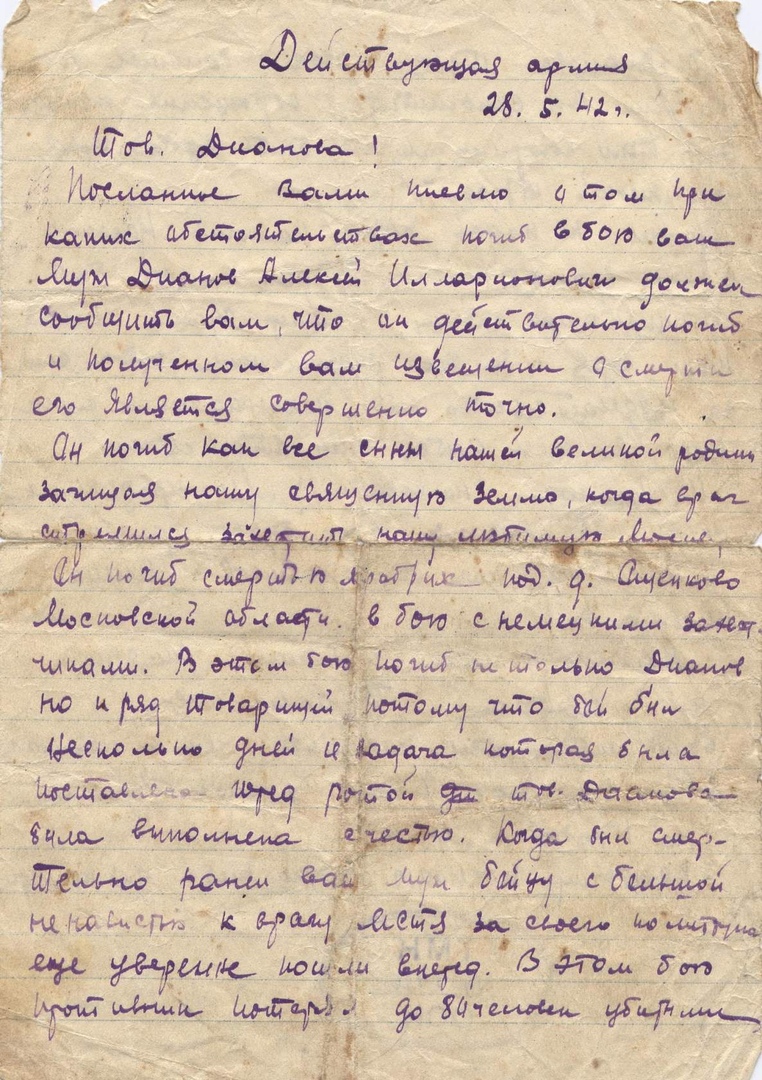 Действующая армия
28. 5. 42 г.
Тов. Дианова!
Посланное вами письмо о том при
каких обстоятельствах погиб в бою ваш
муж Дианов Алексей Илларионович должен
сообщить вам, что он действительно погиб
и полученном вам извещении о смерти
его является совершенно точно.
Он погиб как все сыны нашей великой родины
защищая нашу священную землю, когда враг
стремился захватить нашу любимую
Он погиб смертью храбрых под. д. Ощепково
Московской области. в бою с немецкими захват-
чиками. В этом бою погиб не только Дианов
но и ряд товарищей потому что бой был
несколько дней и задача которая была
поставлена перед ротой тов. Дианова
была выполнена с честью. Когда был смер-
тельно ранен ваш муж бойцы с большой
ненавистью к врагу мстя за своего политрука
еще уверенне пошли вперед. В этом бою
противник потерял до 80 человек убитыми